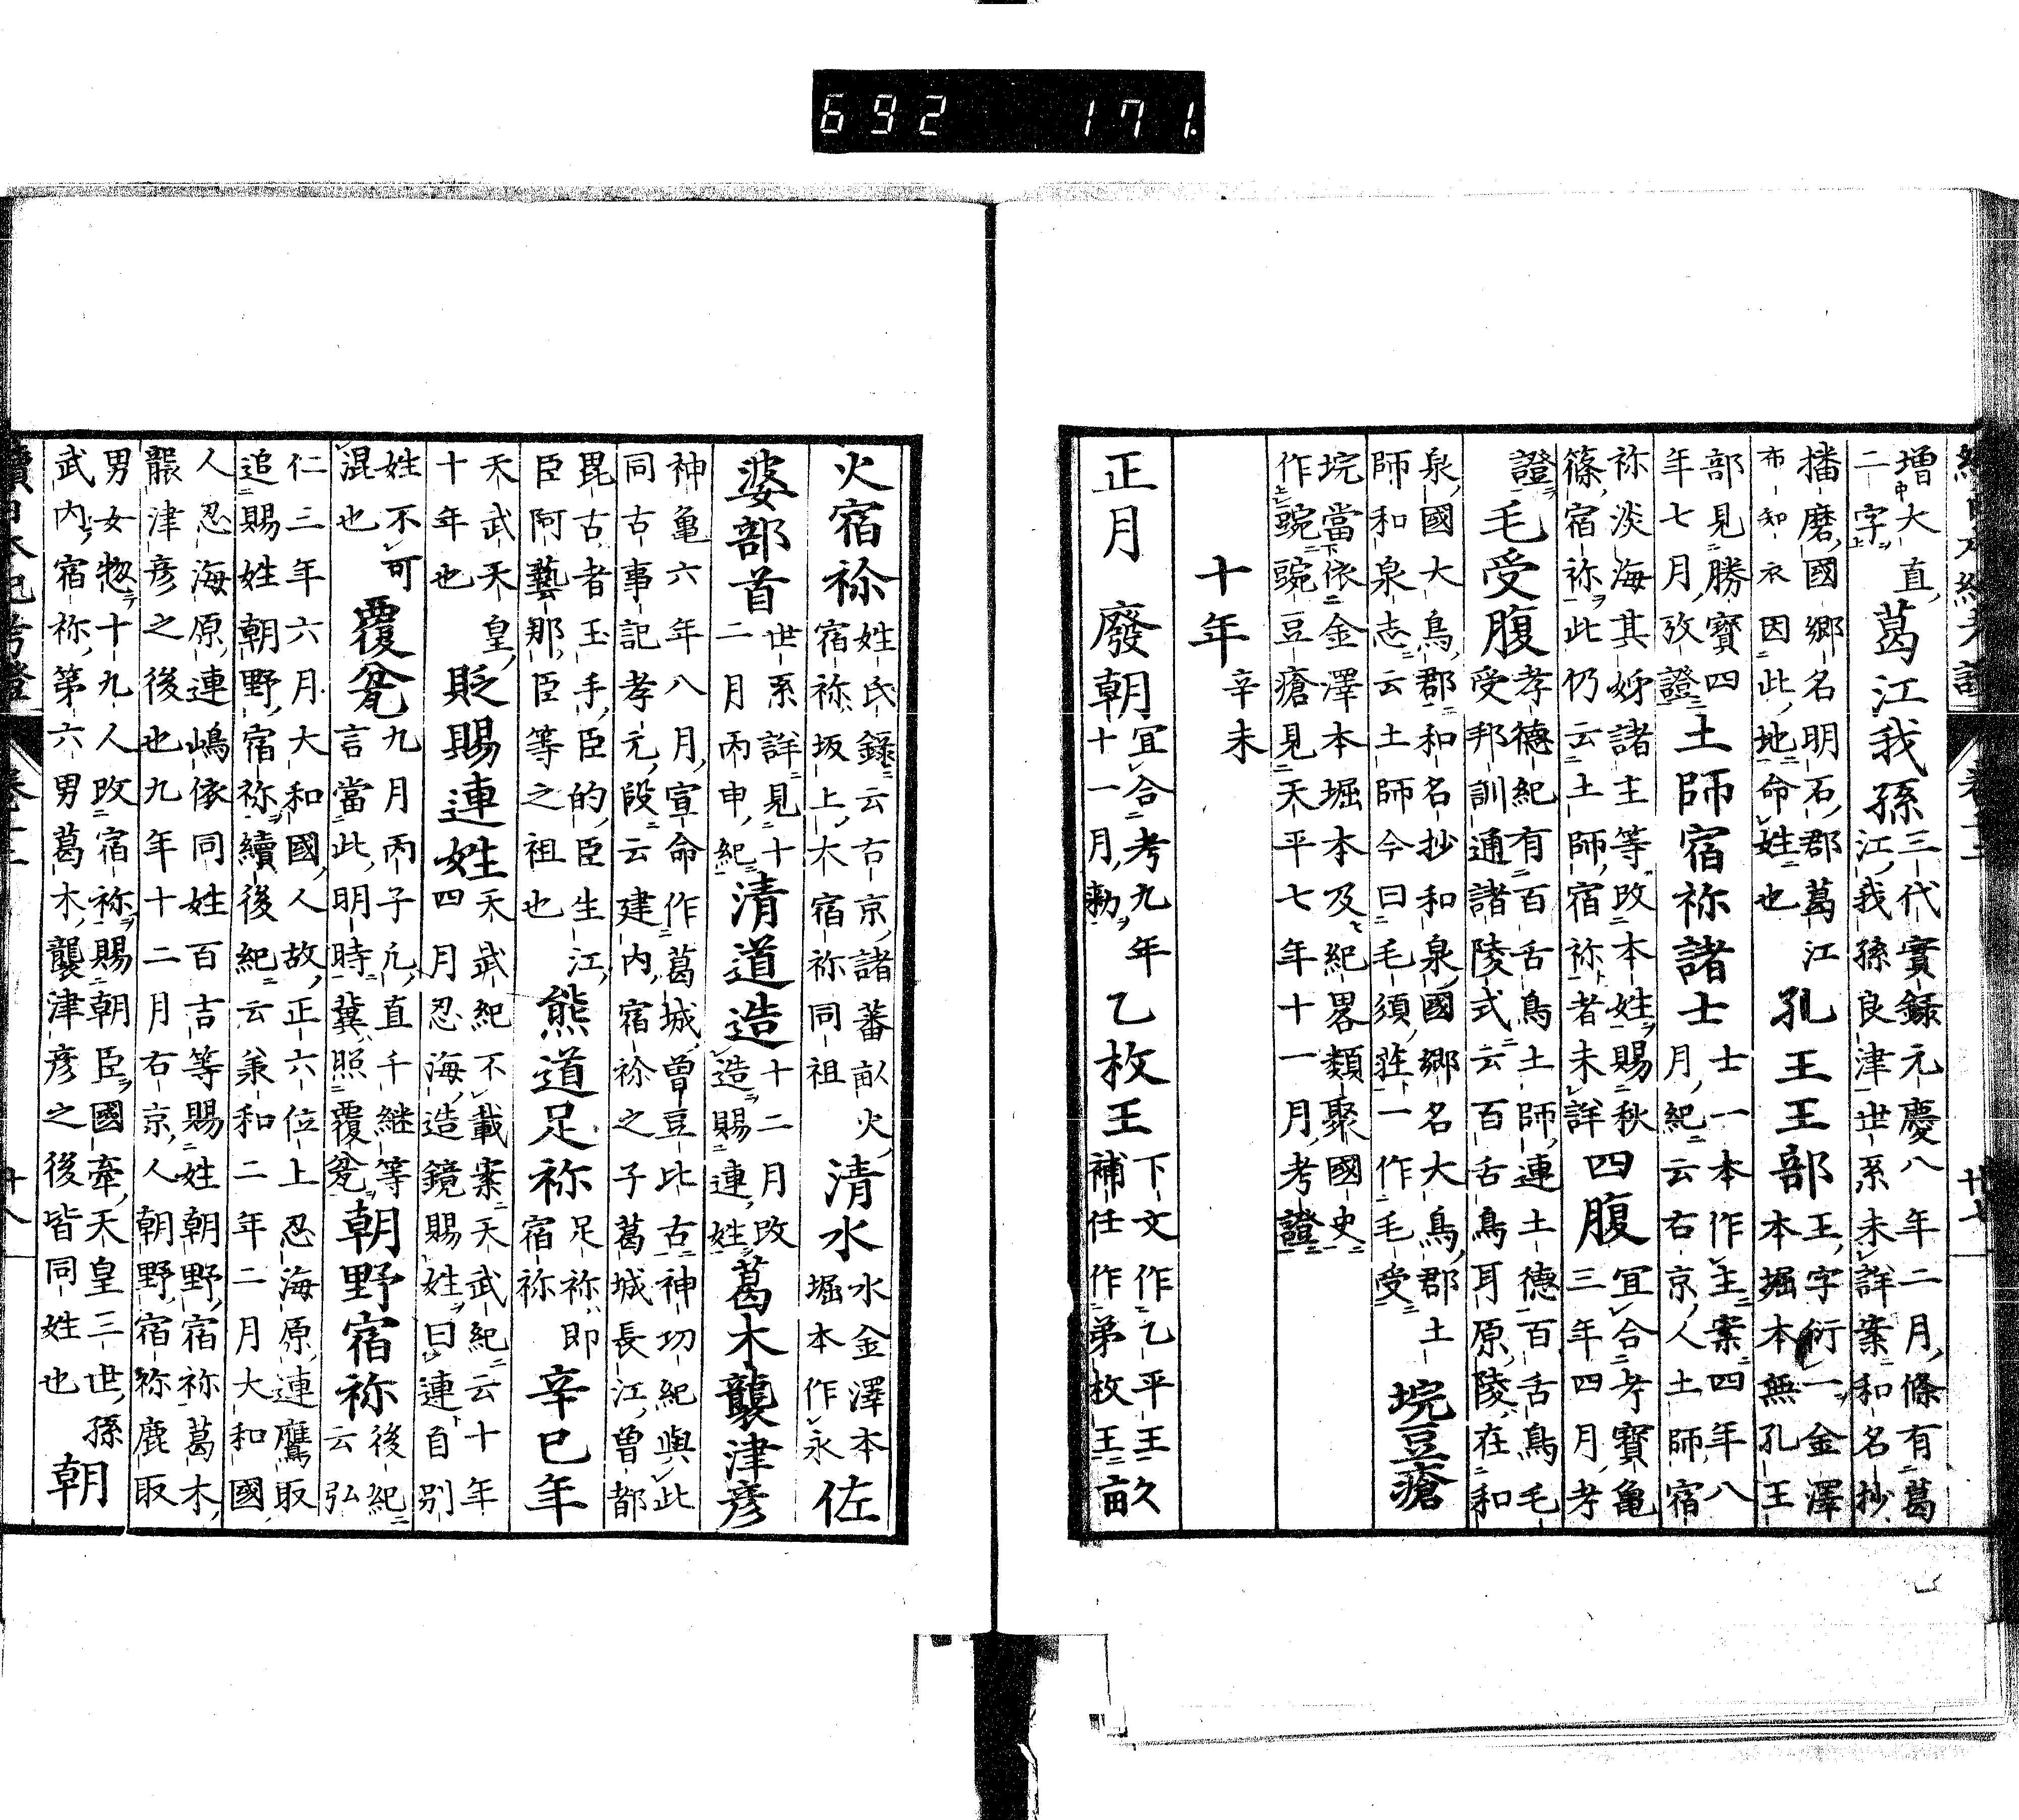 692 171.
増大直
二字
葛江我孫
三代實録元慶八年二月條有葛
江我孫良津世系未詳案和名抄
播磨國郷名明石郡葛江
布知衣因此地命姓也
孔王王部
王字衍一金澤
本堀本無孔王
部見勝寶四
年七月攷證
土師宿祢諸士
士一本作主案四年八
月紀云右京人土師宿
祢淡海其姊諸主等改本姓賜秋
篠宿祢此仍云土師宿祢者未詳
四腹
宜合考寶亀
三年四月考
證
毛受腹
孝德紀有百舌鳥土師連土德百舌鳥毛
受邦訓通諸陵式云百舌鳥耳原陵在和
泉國大鳥郡和名抄和泉國郷名大鳥郡土
師和泉志云土師今曰毛須荘一作毛受
垸豆瘡
垸當依金澤本堀本及紀畧類聚國史
作豌豌豆瘡見天平七年十一月考證
十年 辛未
正月 廢朝
宜合考九年
十一月勅
乙枚王
下文作乙平王
補任作弟枚王
畝
火宿祢
姓氏録云右京諸蕃畝火
宿祢坂上大宿祢同祖
清水
水金澤本
堀本作永
佐
婆部首
世系詳見十
二月丙申紀
清道造
十二月改
造賜連姓
葛木襲津彦
神亀六年八月宣命作葛城曽豆比古神功紀與此
同古事記孝元段云建内宿祢之子葛城長江曽都
毘古者玉手臣的臣生江
臣阿藝那臣等之祖也
熊道足祢
足祢即
宿祢
辛巳年
天武天皇
十年也
貶賜連姓
天武紀不載案天武紀云十年
四月忍海造鏡賜姓曰連自別
姓不可
混也
覆瓫
九月丙子凢直千継等
言當此明時冀照覆瓫
朝野宿祢
後紀
云弘
仁三年六月大和國人故正六位上忍海原連鷹取
追賜姓朝野宿祢續後紀云兼和二年二月大和國
人忍海原連嶋依同姓百吉等賜姓朝野宿祢葛木
襲津彦之後也九年十二月右京人朝野宿祢鹿取
男女惣十九人改宿祢賜朝臣國牽天皇三世孫
武内宿祢第六男葛木襲津彦之後皆同姓也
朝